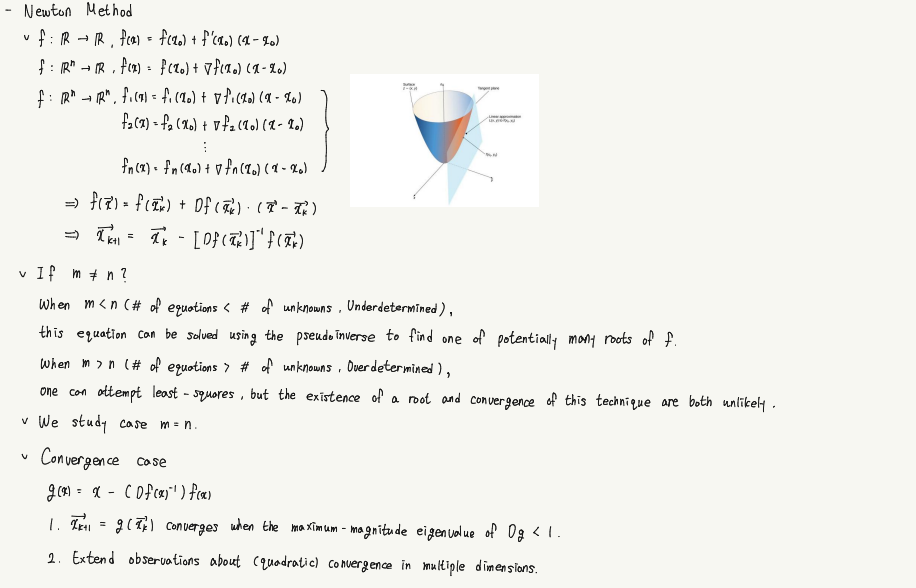 - Newton Method
v f : ℝ → ℝ, f(x) = f(x₀) + f'(x₀) (x - x₀)
f : ℝⁿ → ℝ, f(x) = f(x₀) + ∇f(x₀) (x - x₀)
f : ℝⁿ → ℝⁿ, f₁(x) = f₁(x₀) + ∇f₁(x₀) (x - x₀)
f₂(x) = f₂(x₀) + ∇f₂(x₀) (x - x₀)
⋮
fn(x) = fn(x₀) + ∇fn(x₀) (x - x₀)
Surface
Tangent plane
Linear approximation
⇒ f(x⃗) = f(x⃗ₖ) + Df(x⃗ₖ) · (x⃗ - x⃗ₖ)
⇒ x⃗ₖ₊₁ = x⃗ₖ - [Df(x⃗ₖ)]⁻¹ f(x⃗ₖ)
v If m ≠ n?
When m < n (# of equations < # of unknowns, Underdetermined),
this equation can be solved using the pseudoinverse to find one of potentially many roots of f.
When m > n (# of equations > # of unknowns, Overdetermined),
one can attempt least-squares, but the existence of a root and convergence of this technique are both unlikely.
v We study case m = n.
v Convergence case
g(x) = x - (Df(x)⁻¹) f(x)
1. x⃗ₖ₊₁ = g(x⃗ₖ) converges when the maximum-magnitude eigenvalue of Dg < 1.
2. Extend observations about (quadratic) convergence in multiple dimensions.